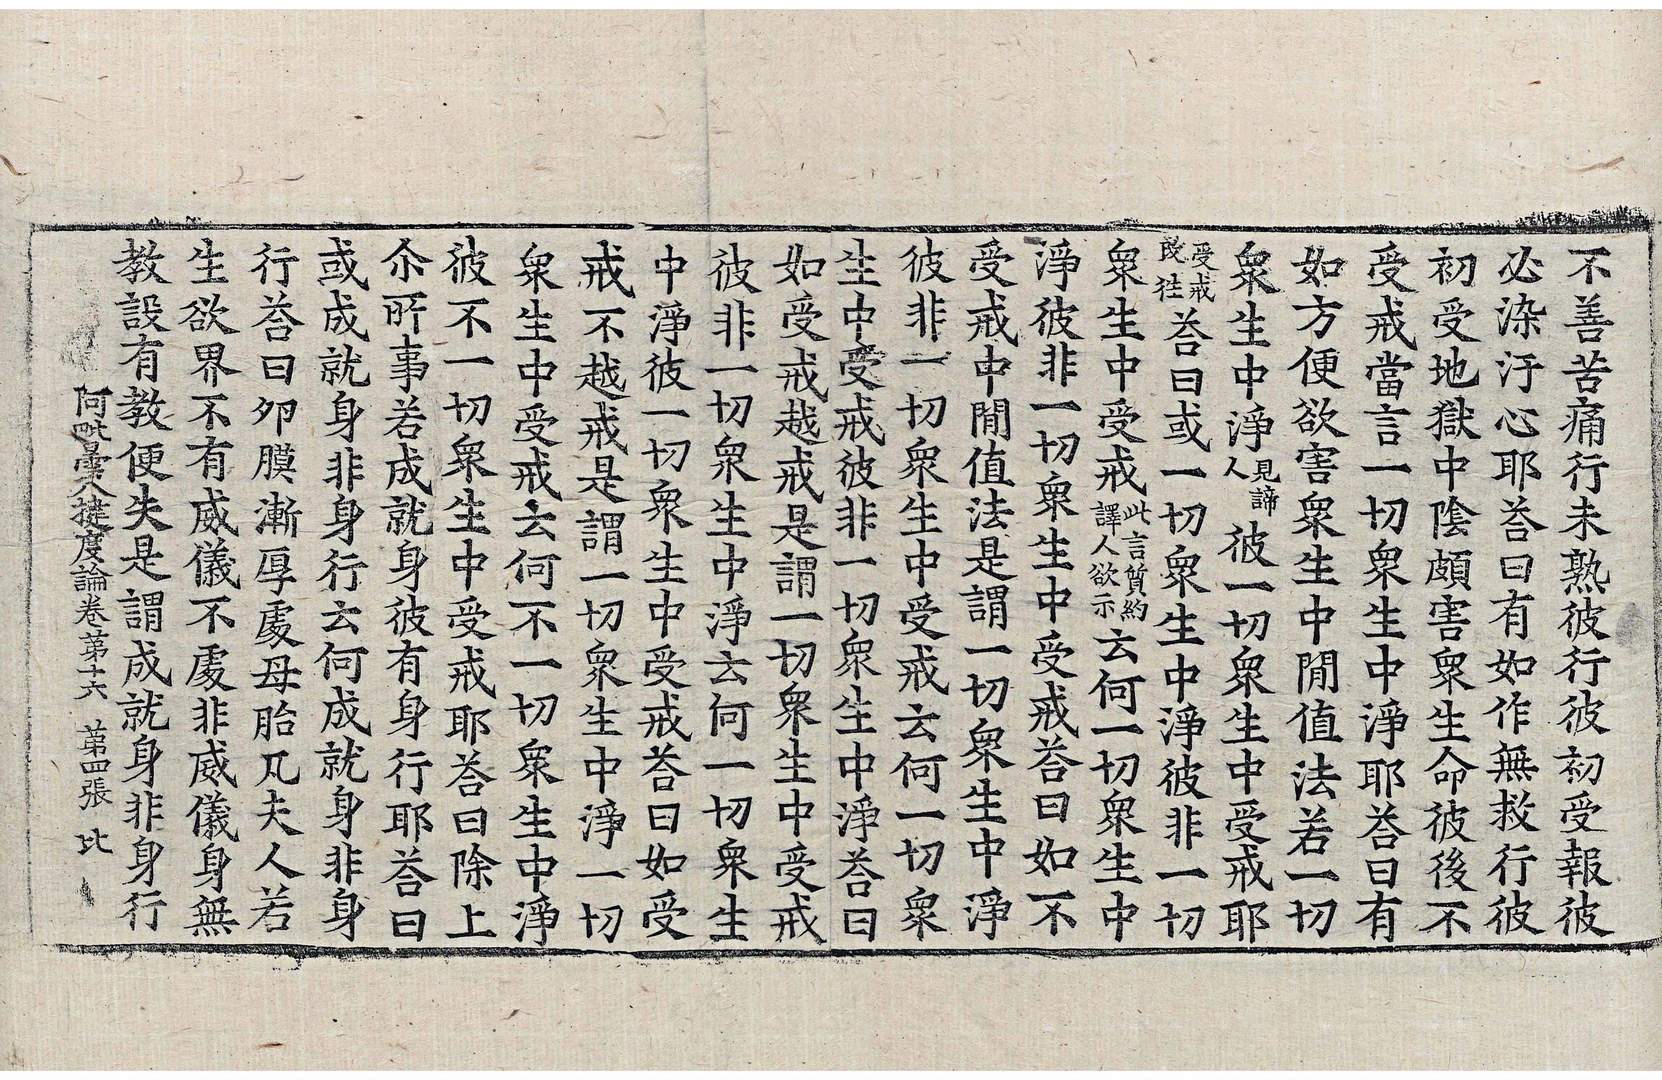 不善苦痛行未熟彼行彼初受報彼
必染汙心耶荅曰有如作無救行彼
初受地獄中陰頗害衆生命彼後不
受戒當言一切衆生中淨耶荅曰有
如方便欲害衆生中閒值法若一切
衆生中淨見諦人彼一切衆生中受戒耶
受戒旣往荅曰或一切衆生中淨彼非一切
衆生中受戒此言質約譯人欲示云何一切衆生中
淨彼非一切衆生中受戒荅曰如不
受戒中閒值法是謂一切衆生中淨
彼非一切衆生中受戒云何一切衆
生中受戒彼非一切衆生中淨荅曰
如受戒越戒是謂一切衆生中受戒
彼非一切衆生中淨云何一切衆生
中淨彼一切衆生中受戒荅曰如受
戒不越戒是謂一切衆生中淨一切
衆生中受戒云何不一切衆生中淨
彼不一切衆生中受戒耶荅曰除上
尒所事若成就身彼有身行耶荅曰
或成就身非身行云何成就身非身
行荅曰卵膜漸厚處母胎凡夫人若
生欲界不有威儀不處非威儀身無
教設有教便失是謂成就身非身行
阿毗曇八揵度論卷第十六 第四張 比